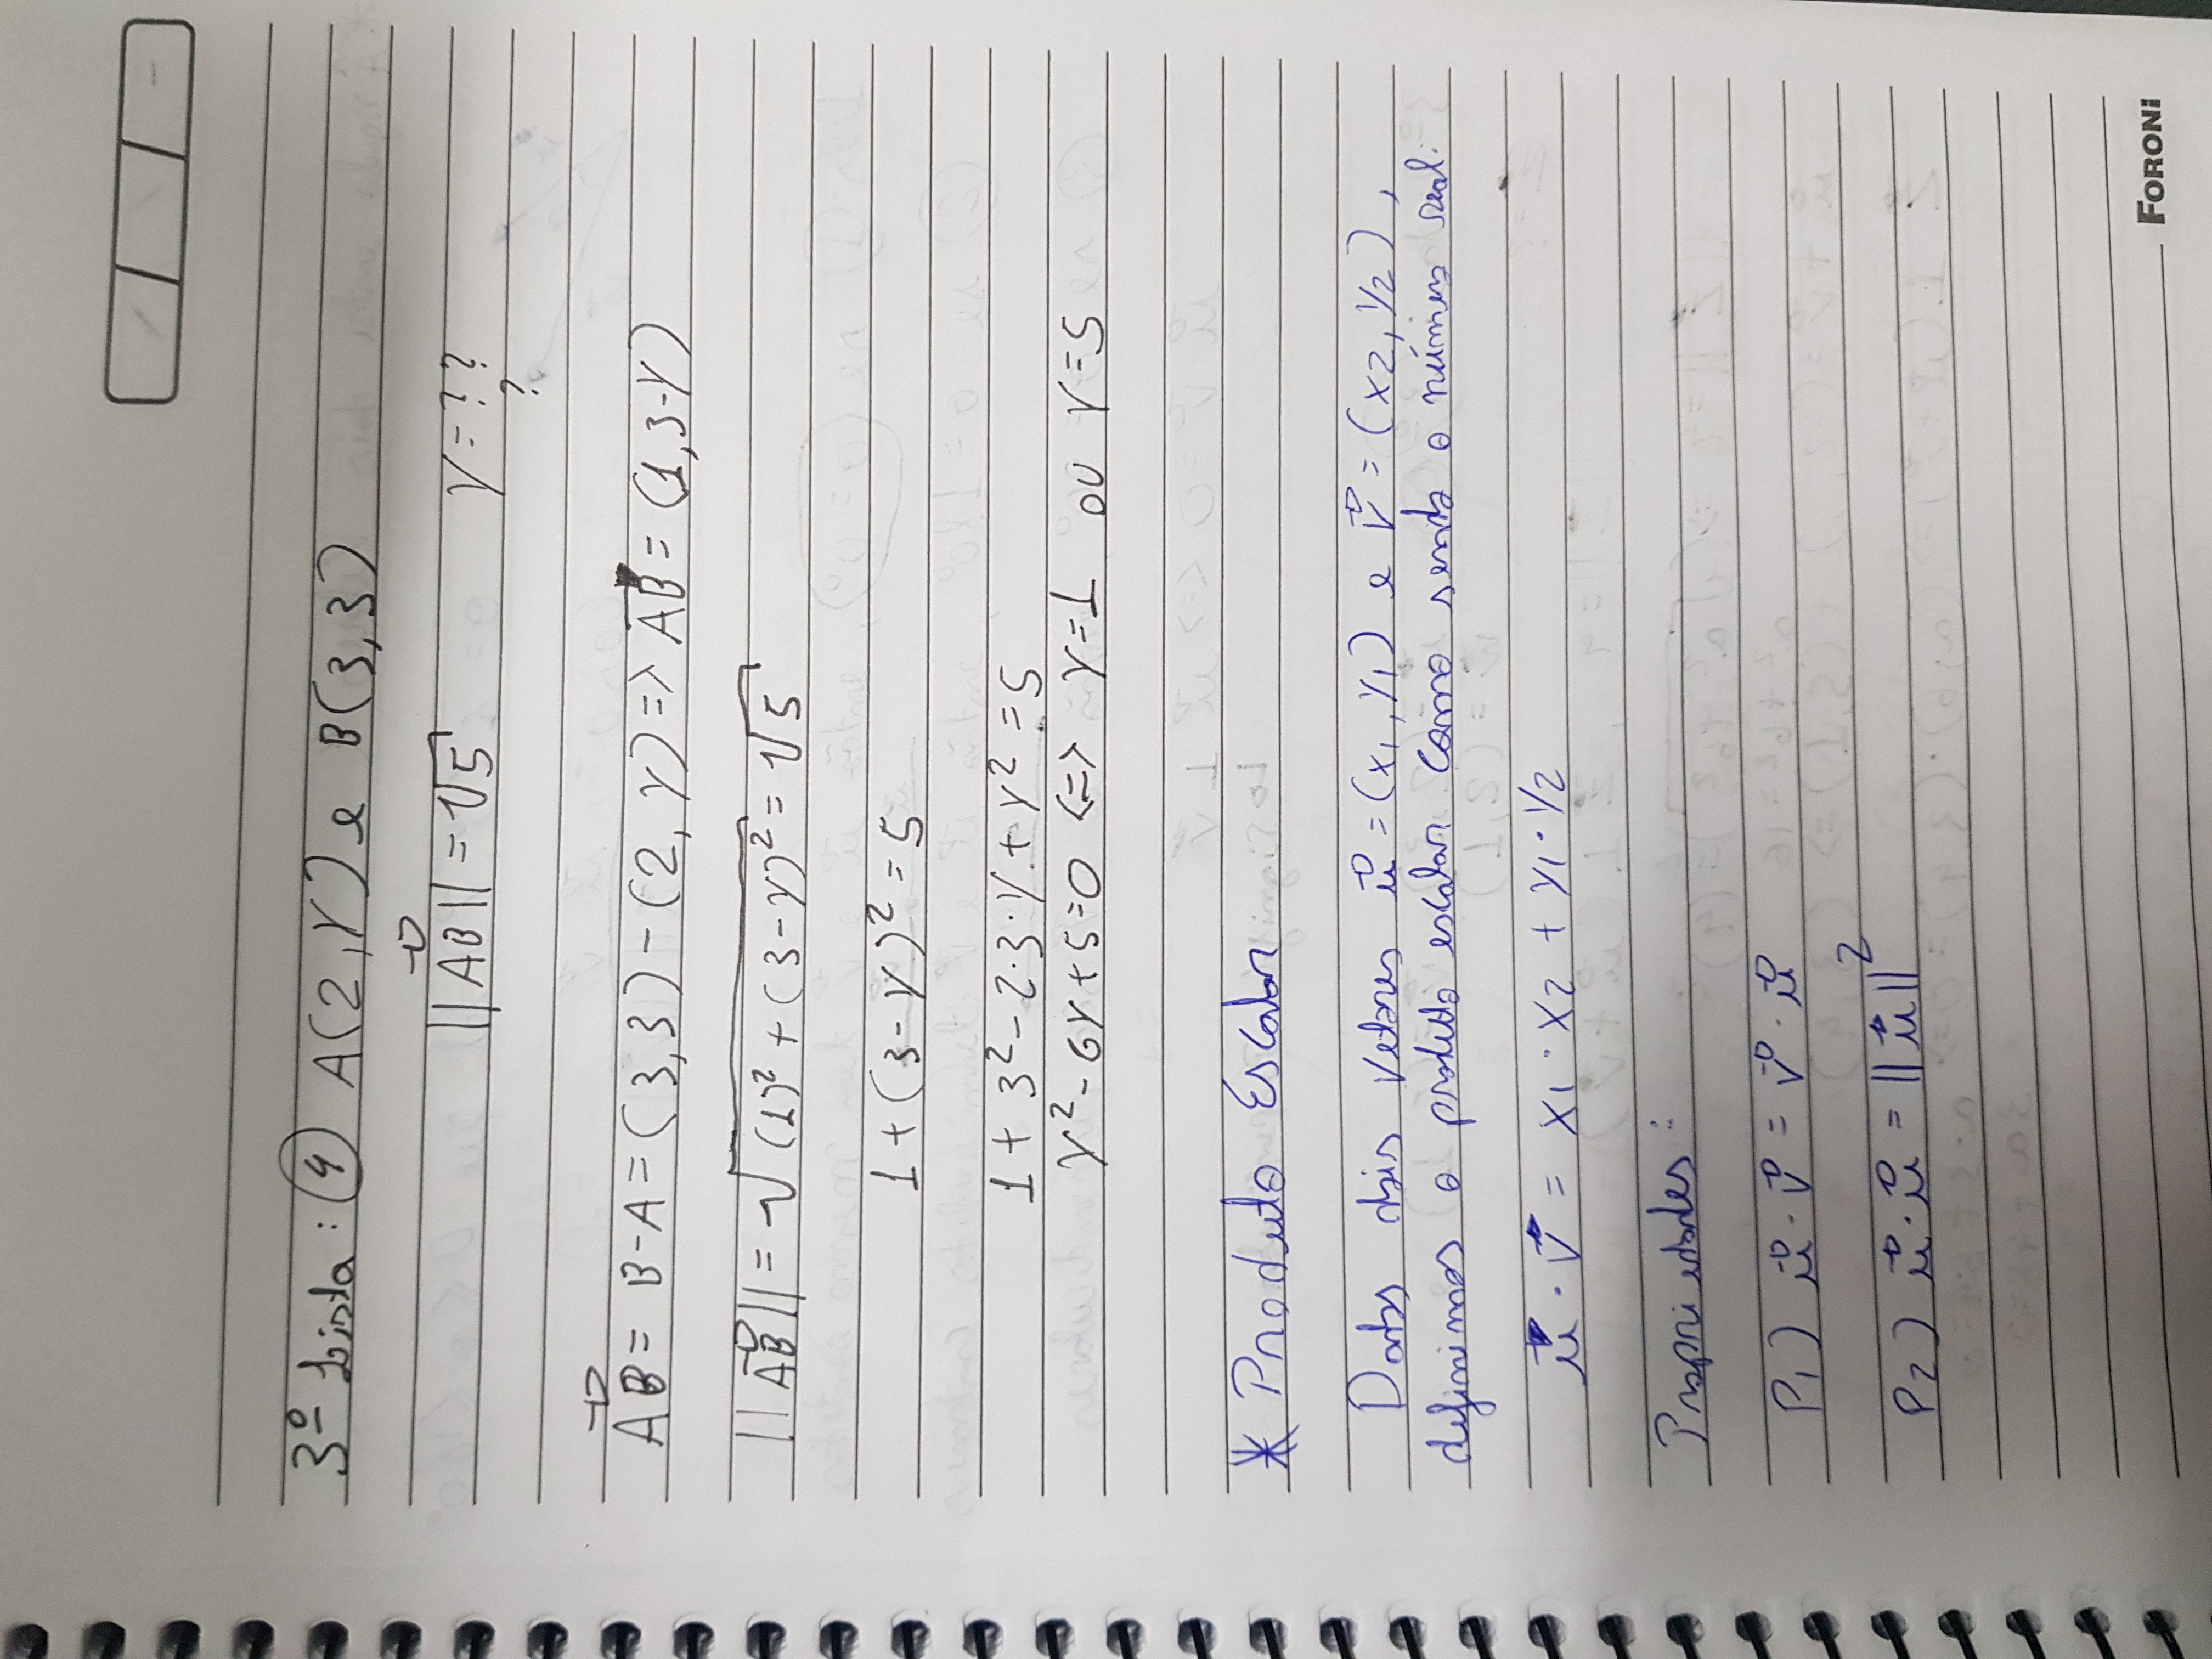 3º Lista: 4 A(2,Y) e B(3,3)
||AB|| = √5 Y = ??
?
AB = B-A = (3,3) - (2,Y) => AB = (1,3-Y)
||AB|| = √(1)² + (3-Y)² = √5
1 + (3-Y)² = 5
1 + 3² - 2·3·Y + Y² = 5
Y² - 6Y + 5 = 0 <=> Y = 1 ou Y = 5
* Produto Escalar
Dados dois vetores u = (x1, y1) e v = (x2, y2),
definimos o produto escalar como sendo o número real:
u · v = x1 · x2 + y1 · y2
Propriedades:
P1) u · v = v · u
P2) u · u = ||u||²
FORONI